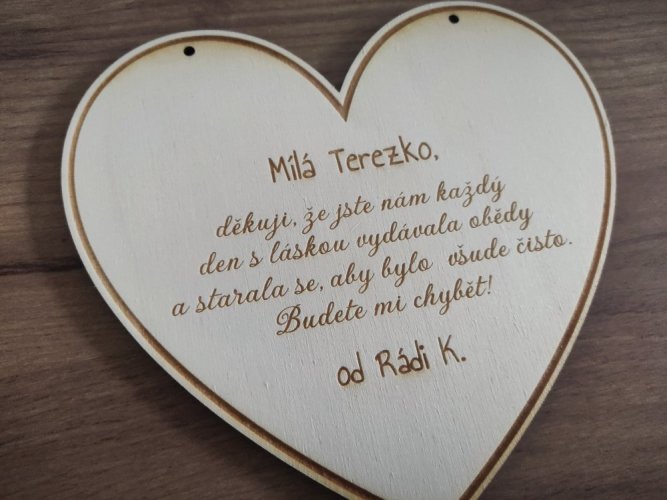 Mílá Terezko,
děkuji, že jste nám každý
den s láskou vydávala obědy
a starala se, aby bylo všude čisto.
Budete mi chybět!
od Rádi K.